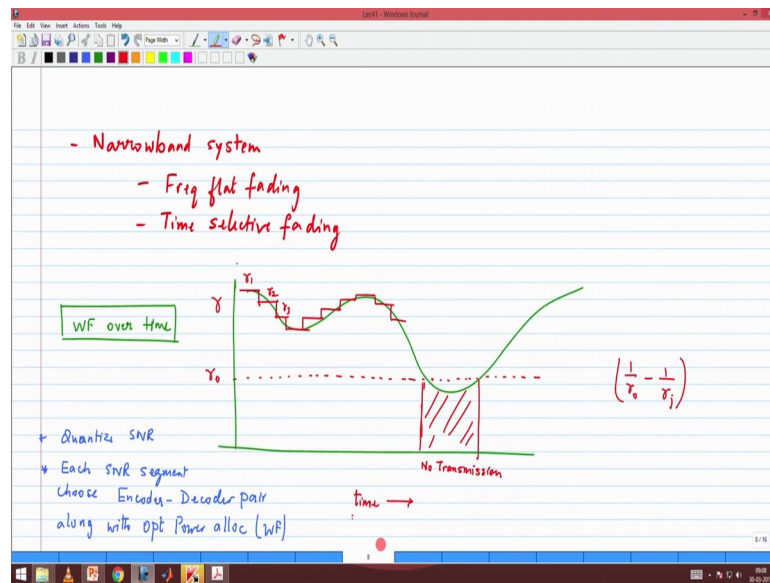 Lec41 - Windows Journal
File Edit View Insert Actions Tools Help
Page Width
B I
- Narrowband system
- Freq flat fading
- Time selective fading
WF over time
γ
γ1
γ2
γ3
γ0
(1/γ0 - 1/γj)
No Transmission
time →
* Quantize SNR
* Each SNR segment
choose Encoder-Decoder pair
along with opt Power alloc (WF)
8
8/16
09:08